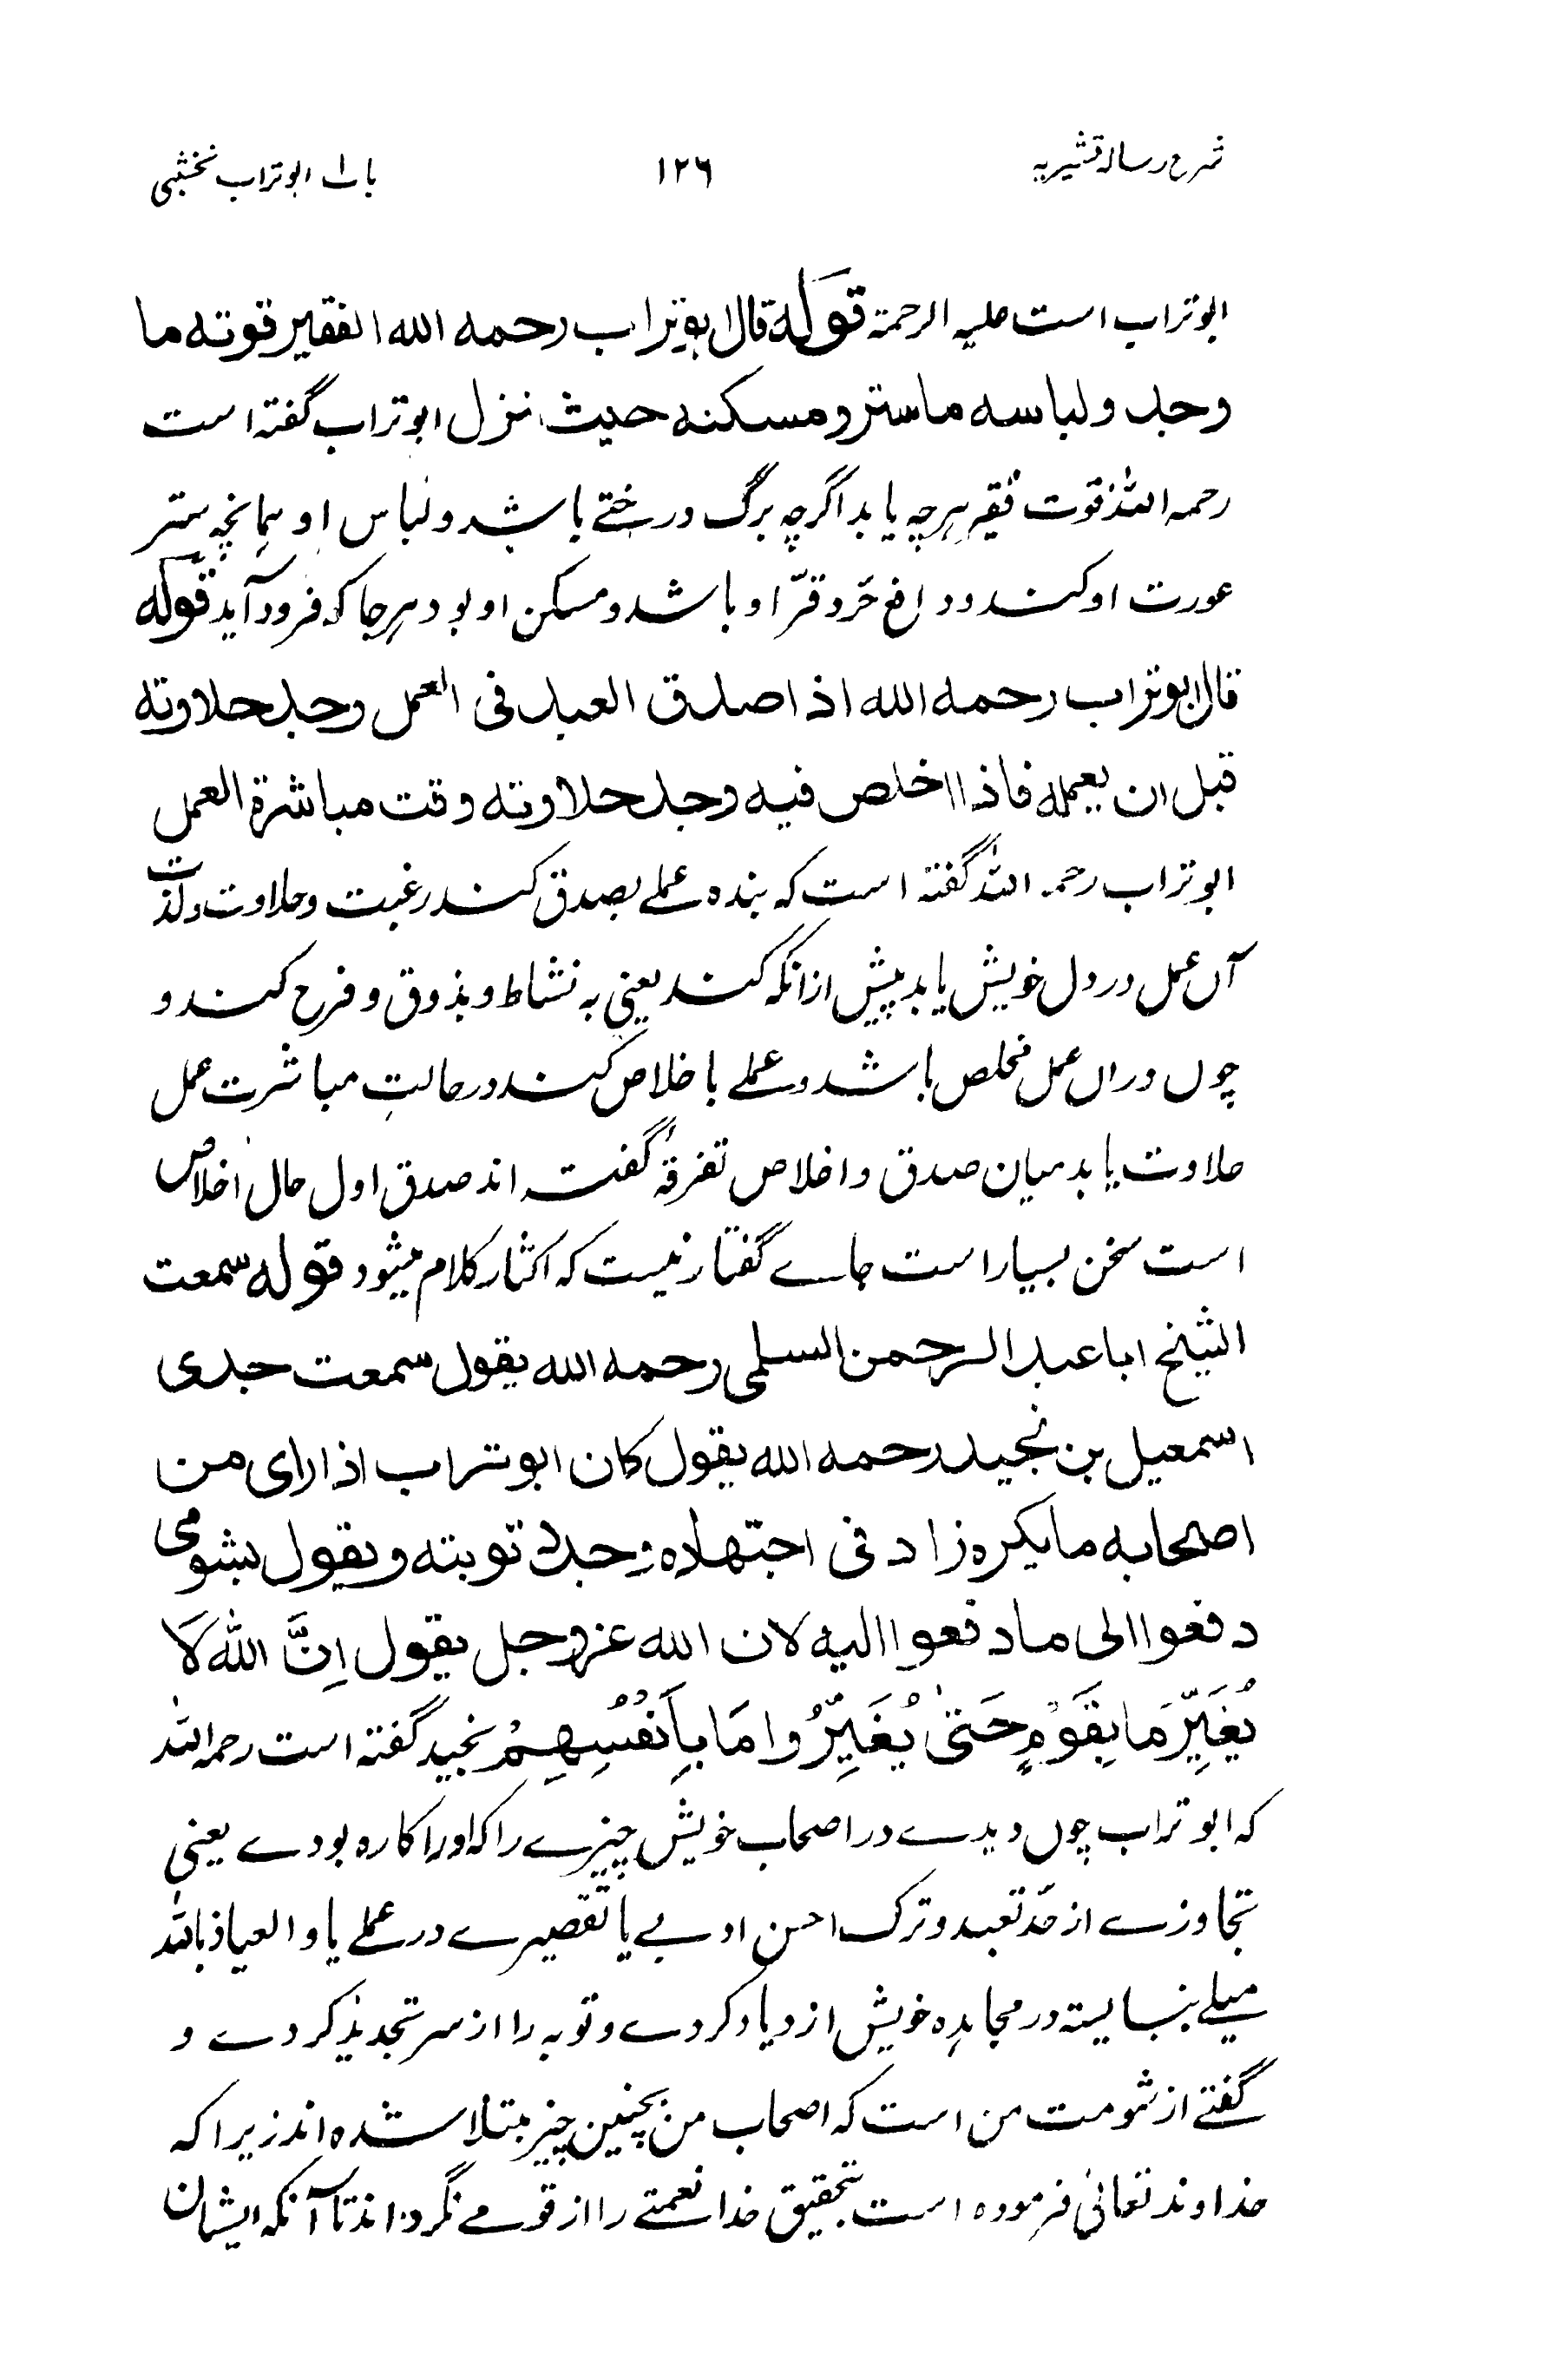 شرح رسالہ قشیریہ
۱۲۶
باب ابو تراب نخشبی
ابو تراب است علیہ الرحمۃ قوله قال ابو تراب رحمه الله الفقير قوته ما
وجد ولباسه ما ستر ومسكنه حيث نزل ابو تراب گفتہ است
رحمہ اللہ قوت فقیر ہرچہ یابد اگرچہ برگ درختے باشد و لباس او ہمانچہ ستر
عورت او کند و دافع حَر و قَرّ او باشد و مسکن او بود ہر جا کہ فرود آید قوله
قال ابو تراب رحمه الله اذا صدق العبد فی العمل وجد حلاوته
قبل ان یعمله فاذا اخلص فیه وجد حلاوته وقت مباشرة العمل
ابو تراب رحمہ اللہ گفتہ است کہ بندہ عملے بصدق کند رغبت و حلاوت و لذت
آں عمل در دل خویش یابد پیش ازانکہ کند یعنی بہ نشاط و بذوق و فرح کند و
چوں دراں عمل مخلص باشد و عملے باخلاص کند در حالتِ مباشرت عمل
حلاوت یابد میان صدق و اخلاص تفرقۂ گفتہ اند صدق اول حال اخلاص
است سخن بسیار است جاے گفتار نیست کہ اکثار کلام میشود قوله سمعت
الشیخ ابا عبد الرحمن السلمی رحمه الله یقول سمعت جدی
اسمعیل بن نجید رحمه الله یقول کان ابو تراب اذا رای من
اصحابه ما یکره زاد فی اجتهاده وجدد توبته ویقول بشومی
دفعوا الی ما دفعوا الیه لان الله عز وجل یقول اِنَّ اللّٰهَ لَا
یُغَیِّرُ مَا بِقَوْمٍ حَتّٰی یُغَیِّرُوا مَا بِاَنْفُسِهِمْ نجید گفتہ است رحمہ اللہ
کہ ابو تراب چوں دیدے در اصحاب خویش چیزے را کہ اورا کارہ بودے یعنی
تجاوزے از حَدّ تعبد و ترک احسن ادبے یا تقصیرے در عملے یا والعیاذ باللہ
میلے بنبایستہ در مجاہدہ خویش ازدیاد کردے و توبہ را از سر تجدید کردے و
گفتے از شومت من است کہ اصحاب من بچنین چیز مبتلا شدہ اند زیرا کہ
خداوند تعالیٰ فرمودہ است بتحقیق خدا نعمتے را از قومے نگرداند تا آنکہ ایشان